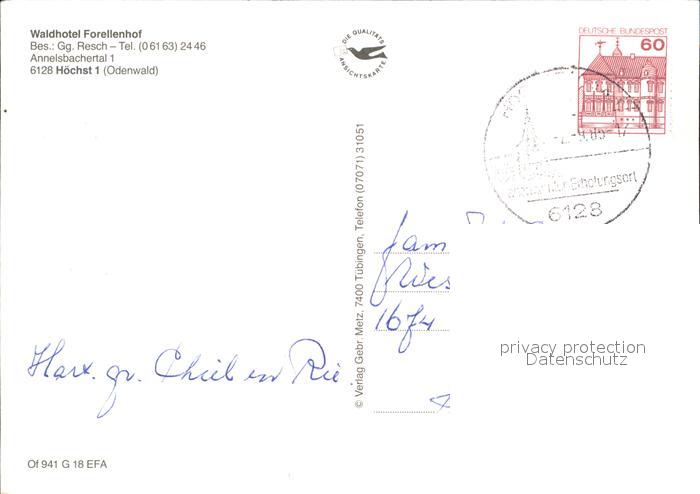 Waldhotel Forellenhof
Bes.: Gg. Resch – Tel. (0 61 63) 24 46
Annelsbachertal 1
6128 Höchst 1 (Odenwald)
DIE QUALITÄTS
ANSICHTSKARTE
DEUTSCHE BUNDESPOST
60
Erholungsort
6128
© Verlag Gebr. Metz, 7400 Tübingen, Telefon (07071) 31051
fam
1674
Hart. gr. Chiel en Rie
privacy protection
Datenschutz
Of 941 G 18 EFA